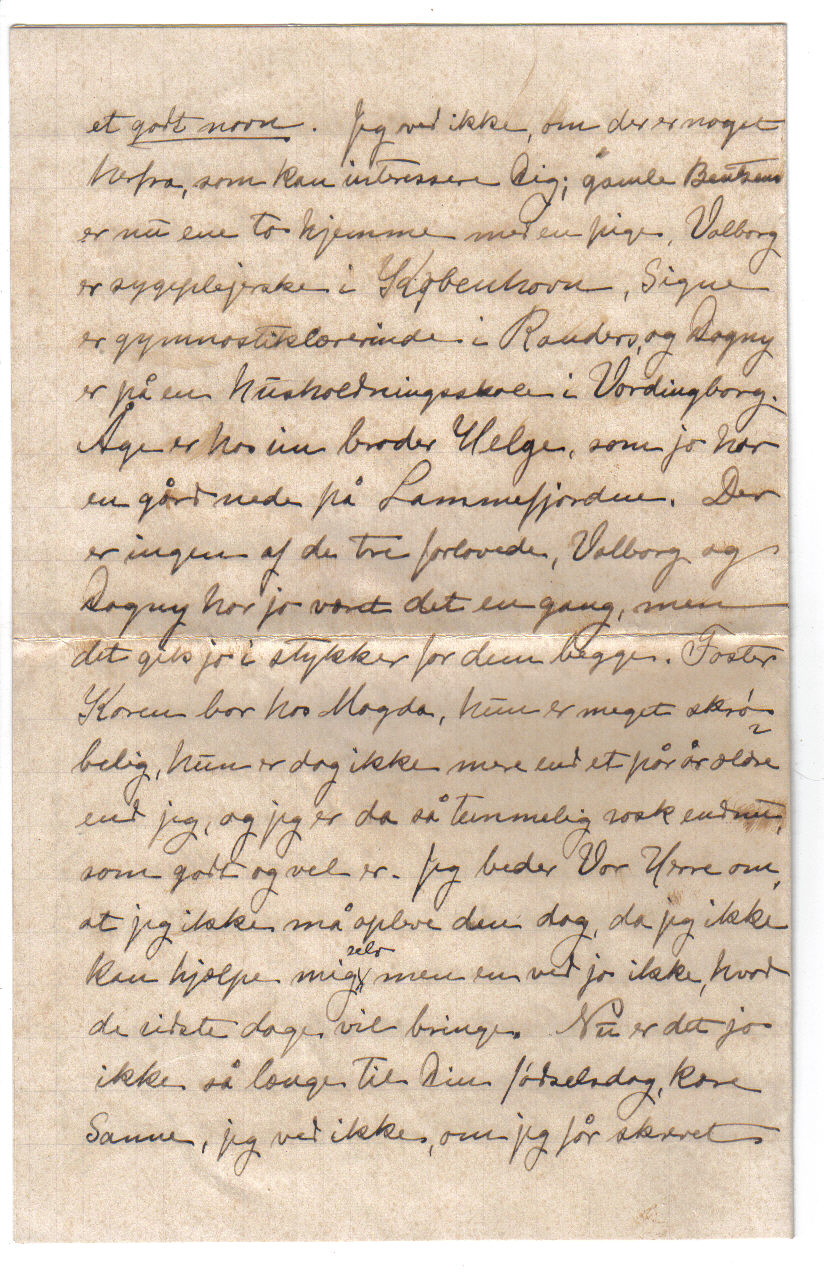 et godt navn. Jeg ved ikke, om der er noget
herfra, som kan interessere Dig; gamle Bentsens
er nu ene to hjemme med en pige, Valborg
er sygeplejerske i København, Signe
er gymnastiklærerinde i Randers, og Dagny
er på en husholdningsskole i Vordingborg.
Åge er hos min broder Helge, som jo har
en gård nede på Lammefjorden. Der
er ingen af de tre forlovede, Valborg og
Dagny har jo været det en gang, men
det gik jo i stykker for dem begge. Faster
Karen bor hos Magda, hun er meget skrø-
belig, hun er dog ikke mere end et par år ældre
end jeg, og jeg er da så temmelig rask endnu,
som godt og vel er. Jeg beder Vor Herre om,
at jeg ikke må opleve den dag, da jeg ikke
kan hjælpe mig selv, men en ved jo ikke, hvad
de sidste dage vil bringe. Nu er det jo
ikke så længe til Din fødselsdag, kære
Sanne, jeg ved ikke, om jeg får skrevet